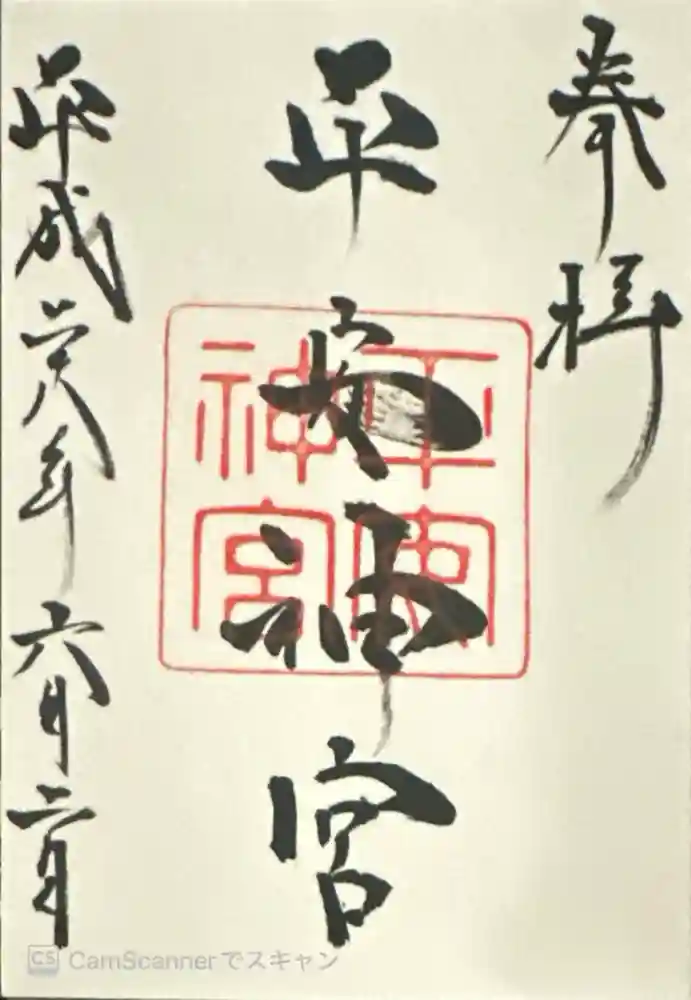 奉拝
平安神宮
平安神宮
平成二十八年六月二日
CS CamScannerでスキャン